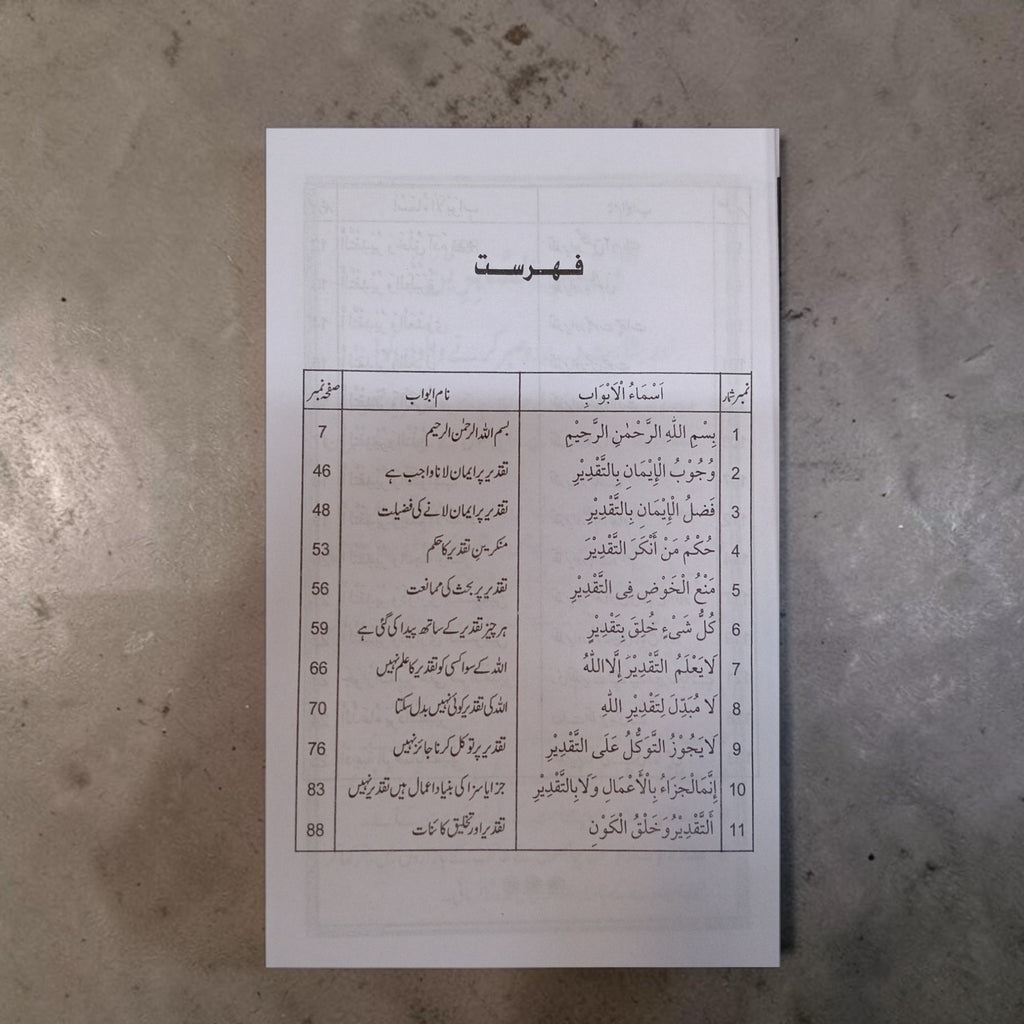 فہرست
نمبر شمار اَسْمَاءُ الْاَبْوَابِ نام ابواب صفحہ نمبر
1 بِسْمِ اللّٰهِ الرَّحْمٰنِ الرَّحِيْمِ بسم اللہ الرحمٰن الرحیم 7
2 وُجُوْبُ الْإِيْمَانِ بِالتَّقْدِيْرِ تقدیر پر ایمان لانا واجب ہے 46
3 فَضْلُ الْإِيْمَانِ بِالتَّقْدِيْرِ تقدیر پر ایمان لانے کی فضیلت 48
4 حُكْمُ مَنْ أَنْكَرَ التَّقْدِيْرَ منکرینِ تقدیر کا حکم 53
5 مَنْعُ الْخَوْضِ فِى التَّقْدِيْرِ تقدیر پر بحث کی ممانعت 56
6 كُلُّ شَىْءٍ خُلِقَ بِتَقْدِيْرٍ ہر چیز تقدیر کے ساتھ پیدا کی گئی ہے 59
7 لَا يَعْلَمُ التَّقْدِيْرَ إِلَّا اللّٰهُ اللہ کے سوا کسی کو تقدیر کا علم نہیں 66
8 لَا مُبَدِّلَ لِتَقْدِيْرِ اللّٰهِ اللہ کی تقدیر کوئی نہیں بدل سکتا 70
9 لَا يَجُوْزُ التَّوَكُّلُ عَلَى التَّقْدِيْرِ تقدیر پر توکل کرنا جائز نہیں 76
10 إِنَّمَا الْجَزَاءُ بِالْأَعْمَالِ وَلَا بِالتَّقْدِيْرِ جزا یا سزا کی بنیاد اعمال ہیں تقدیر نہیں 83
11 اَلتَّقْدِيْرُ وَخَلْقُ الْكَوْنِ تقدیر اور تخلیق کائنات 88